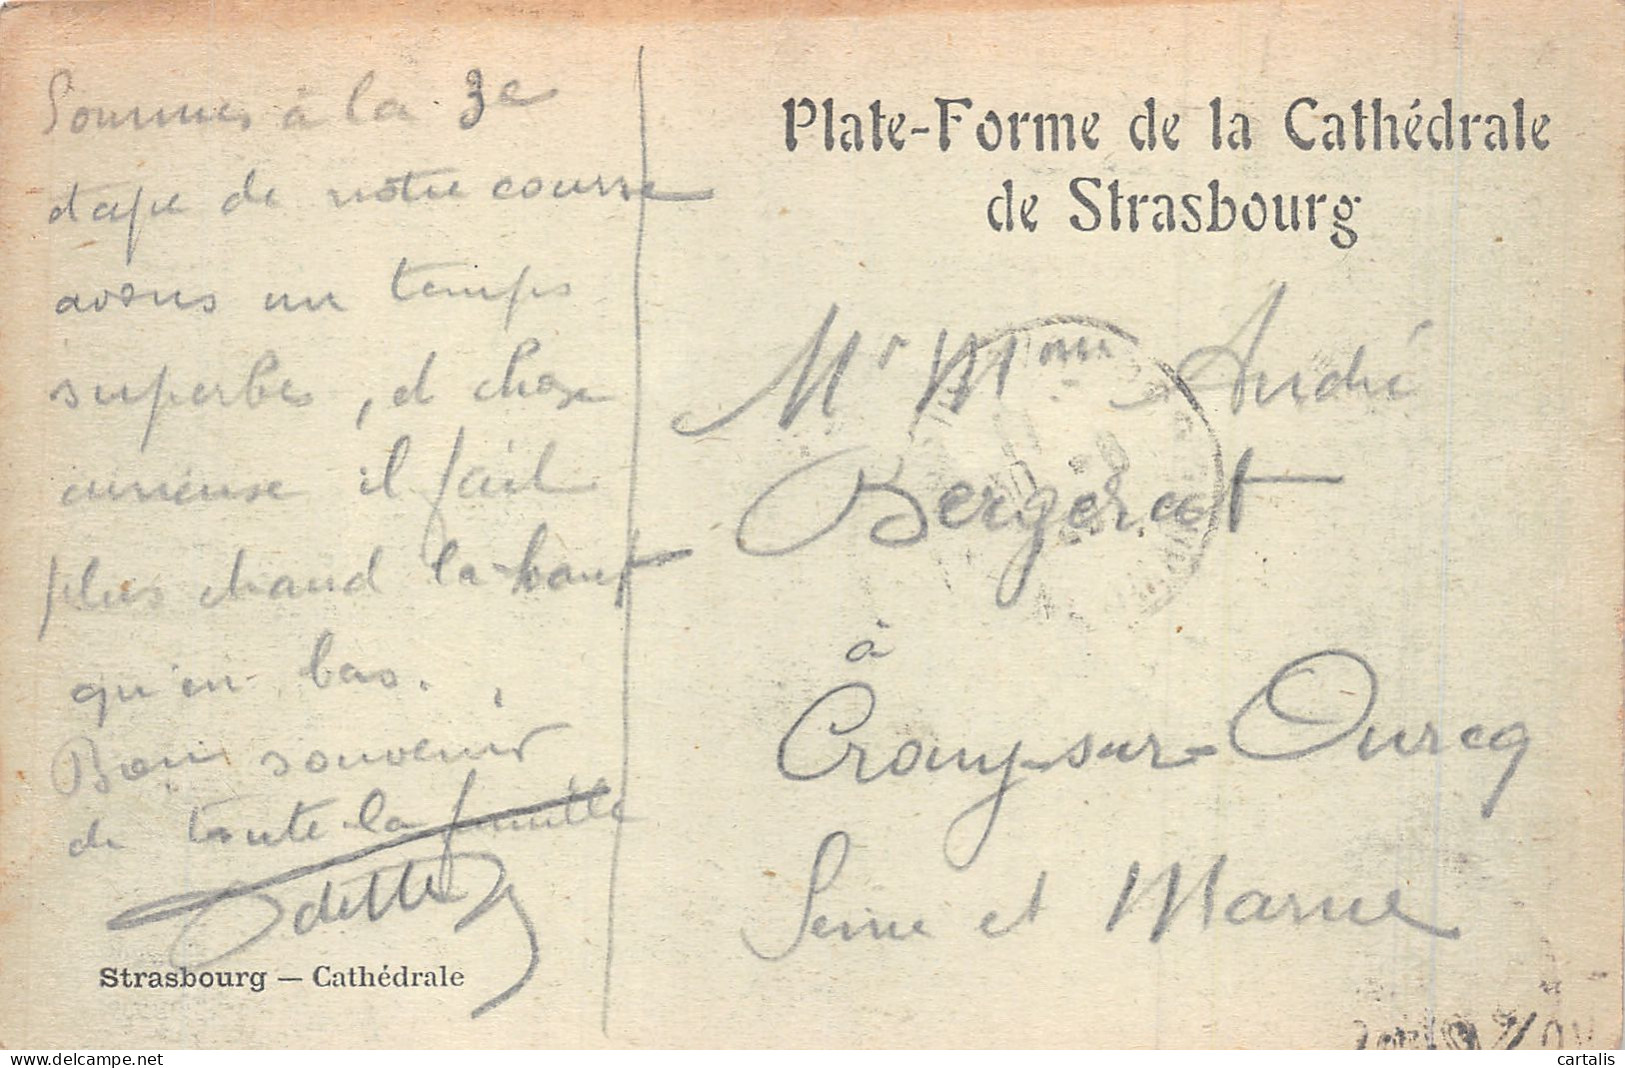 Sommes à la 3e
étape de notre course
avons un temps
superbe, et chose
curieuse il fait
plus chaud la-haut
qu'en bas.
Bon souvenir
de toute la famille
Odette
Strasbourg — Cathédrale
Plate-Forme de la Cathédrale
de Strasbourg
Mr Mme André
Bergerot
à
Crouy-sur-Ourcq
Seine et Marne
cartalis